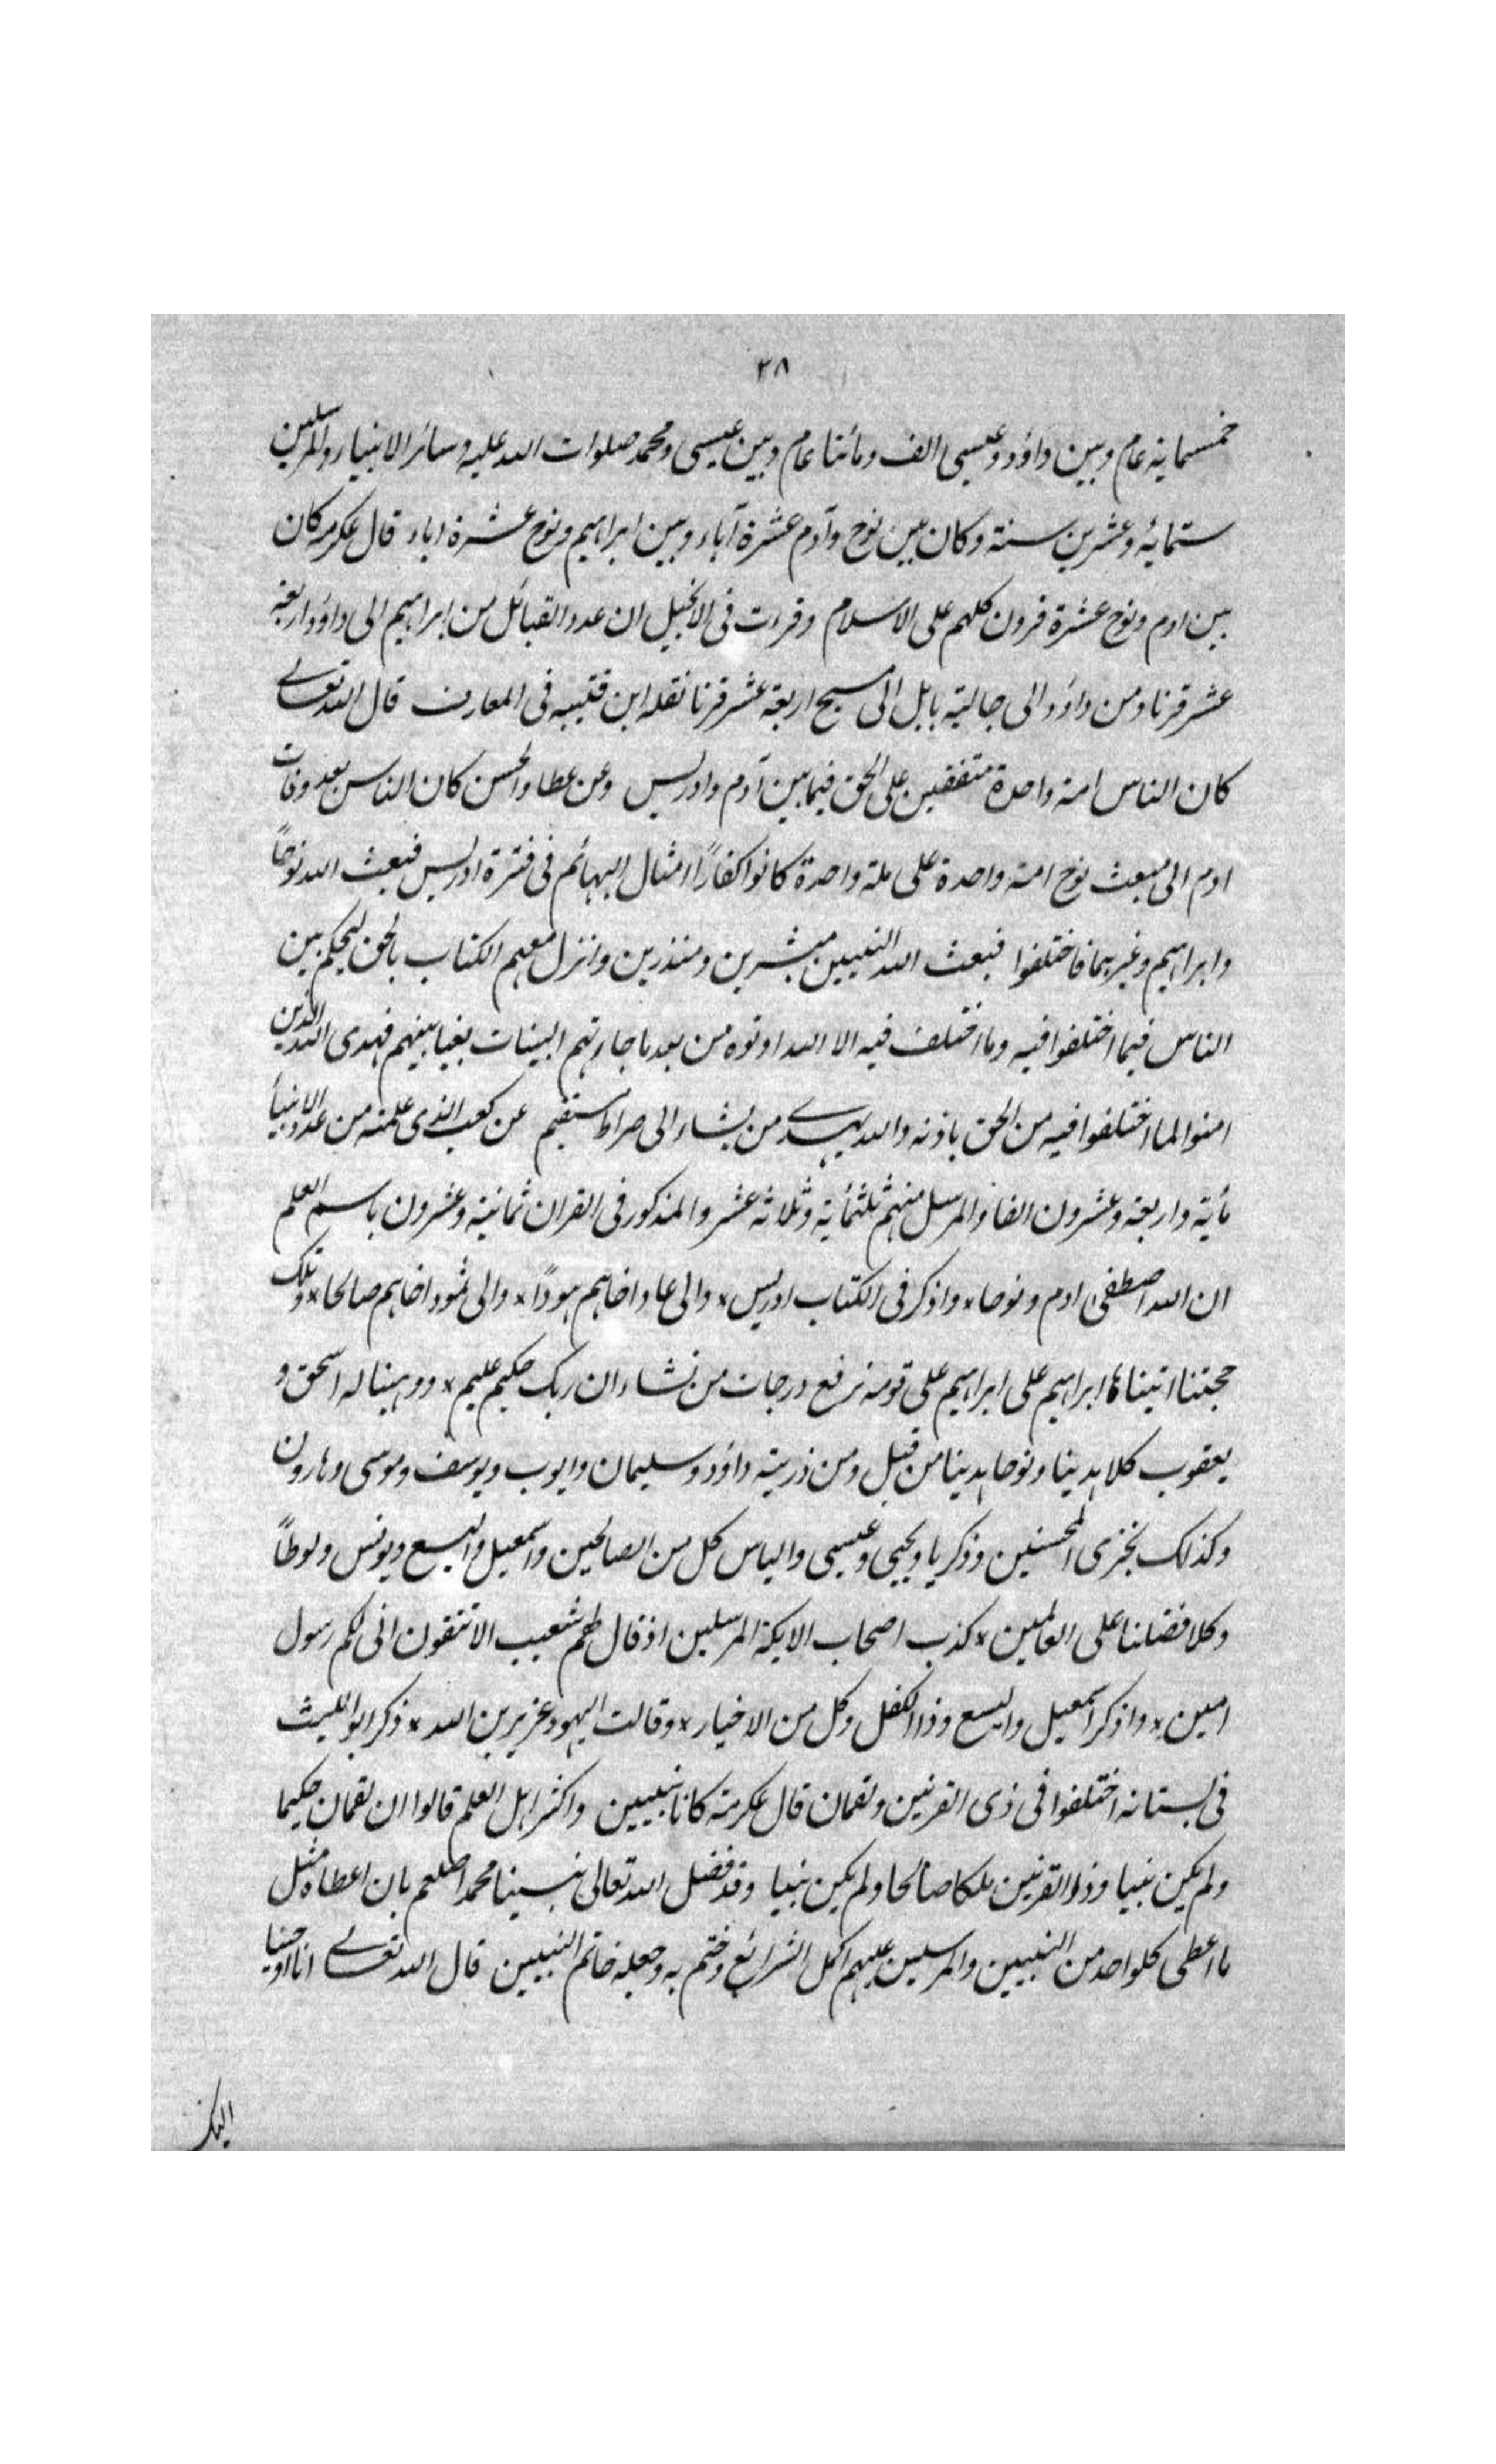 ٢٨
خمسمایة عام وبین داؤد وعیسی الف ومائتا عام وبین عیسی ومحمد صلوات الله علیه وسائر الانبیاء والمرسلین
ستمایه وعشرین سنة وکان بین نوح وآدم عشرة آباء وبین ابراهیم ونوح عشرة اباء قال عکرمه کان
بین ادم ونوح عشرة قرون کلهم علی الاسلام وقرءت فی الانجیل ان عدد القبائل من ابراهیم الی داؤد اربعة
عشر قرنا ومن داؤد الی جالیة بابل الی مسیح اربعة عشر قرنا نقله ابن قتیبه فی المعارف قال الله تعالے
کان الناس امة واحدة متفقین علی الحق فیما بین آدم وادریس وعن عطا والحسن کان الناس بعد وفات
ادم الی مبعث نوح امة واحدة علی ملة واحدة کانوا کفاراً امثال البهائم فی فترة ادریس فبعث الله نوحاً
وابراهیم وغیرهما فاختلفوا فبعث الله النبیین مبشرین ومنذرین وانزل معهم الکتاب بالحق لیحکم بین
الناس فیما اختلفوا فیه وما اختلف فیه الا الله اوتوه من بعد ما جاءتهم البینات بغیا بینهم فهدی الله الذین
امنوا لما اختلفوا فیه من الحق باذنه والله یهدے من یشاء الی صراط مستقیم عن کعب الذی علمته من عدد الانبیأ
مأیة واربعة وعشرون الفا والمرسل منهم ثلثمأیة وثلاثه عشر والمذکور فی القران ثمانیة وعشرون باسم العلم
ان الله اصطفی ادم ونوحا٭ واذکر فی الکتاب ادریس٭ والی عاد اخاهم هودًا٭ والی ثمود اخاهم صالحا٭ وتلک
حجتنا اتیناها ابراهیم علی ابراهیم علی قومه نرفع درجات من نشاء ان ربک حکیم علیم٭ ووهبنا له اسحق و
یعقوب کلا هدینا ونوحا هدینا من قبل ومن ذریته داؤد وسلیمان وایوب ویوسف وموسی وهارون
وکذلک نجزی المحسنین وزکریا ویحیی وعیسی والیاس کل من الصالحین واسمعیل والیسع ویونس ولوطاً
وکلا فضلنا علی العالمین٭ کذب اصحاب الایکة المرسلین اذ قال لهم شعیب الا تتقون انی لکم رسول
امین٭ واذکر اسمعیل والیسع وذا الکفل وکل من الاخیار٭ وقالت الیهود عزیر بن الله٭ ذکر ابو اللیث
فی بستانه اختلفوا فی ذی القرنین ولقمان قال عکرمة کانا نبیین واکثر اهل العلم قالوا ان لقمان حکیما
ولم یکن نبیا وذو القرنین ملکا صالحا ولم یکن نبیا وقد فضل الله تعالی نبینا محمد اصلعم بان اعطاه مثل
ما اعطی کلواحد من النبیین والمرسلین علیهم اکل الشرائع وختم به وجعله خاتم النبیین قال الله تعالے انا اوحینا
الیک